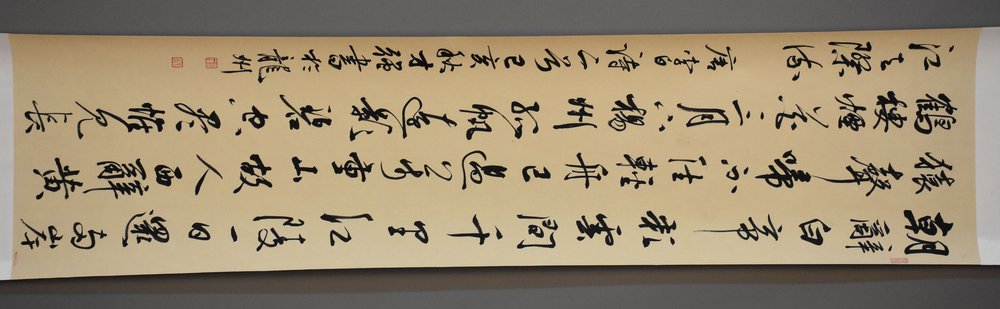 朝辭白帝彩雲間千里江陵一日還兩岸
猿聲啼不住輕舟已過萬重山故人西辭黃
鶴樓煙花三月下揚州孤帆遠影碧空盡惟見長
江天際流
唐李白詩二首己亥秋才強書於龍州